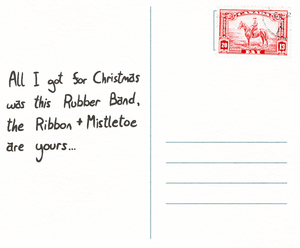 All I got for Christmas
was this Rubber Band,
the Ribbon + Mistletoe
are yours...
CANADA
20 13